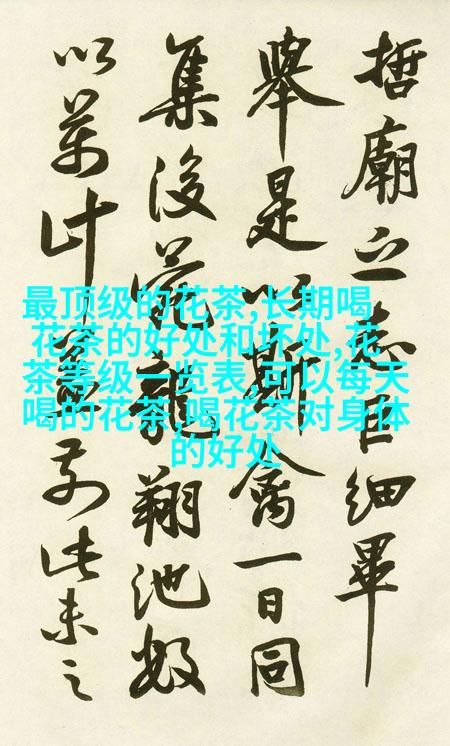 哲廟之志巨細畢
舉是以斯禽一日同
集後苑龍翔池數
以萬計蓋前此未之
最顶级的花茶,长期喝
花茶的好处和坏处,花
茶等级一览表,可以每天
喝的花茶,喝花茶对身体
的好处